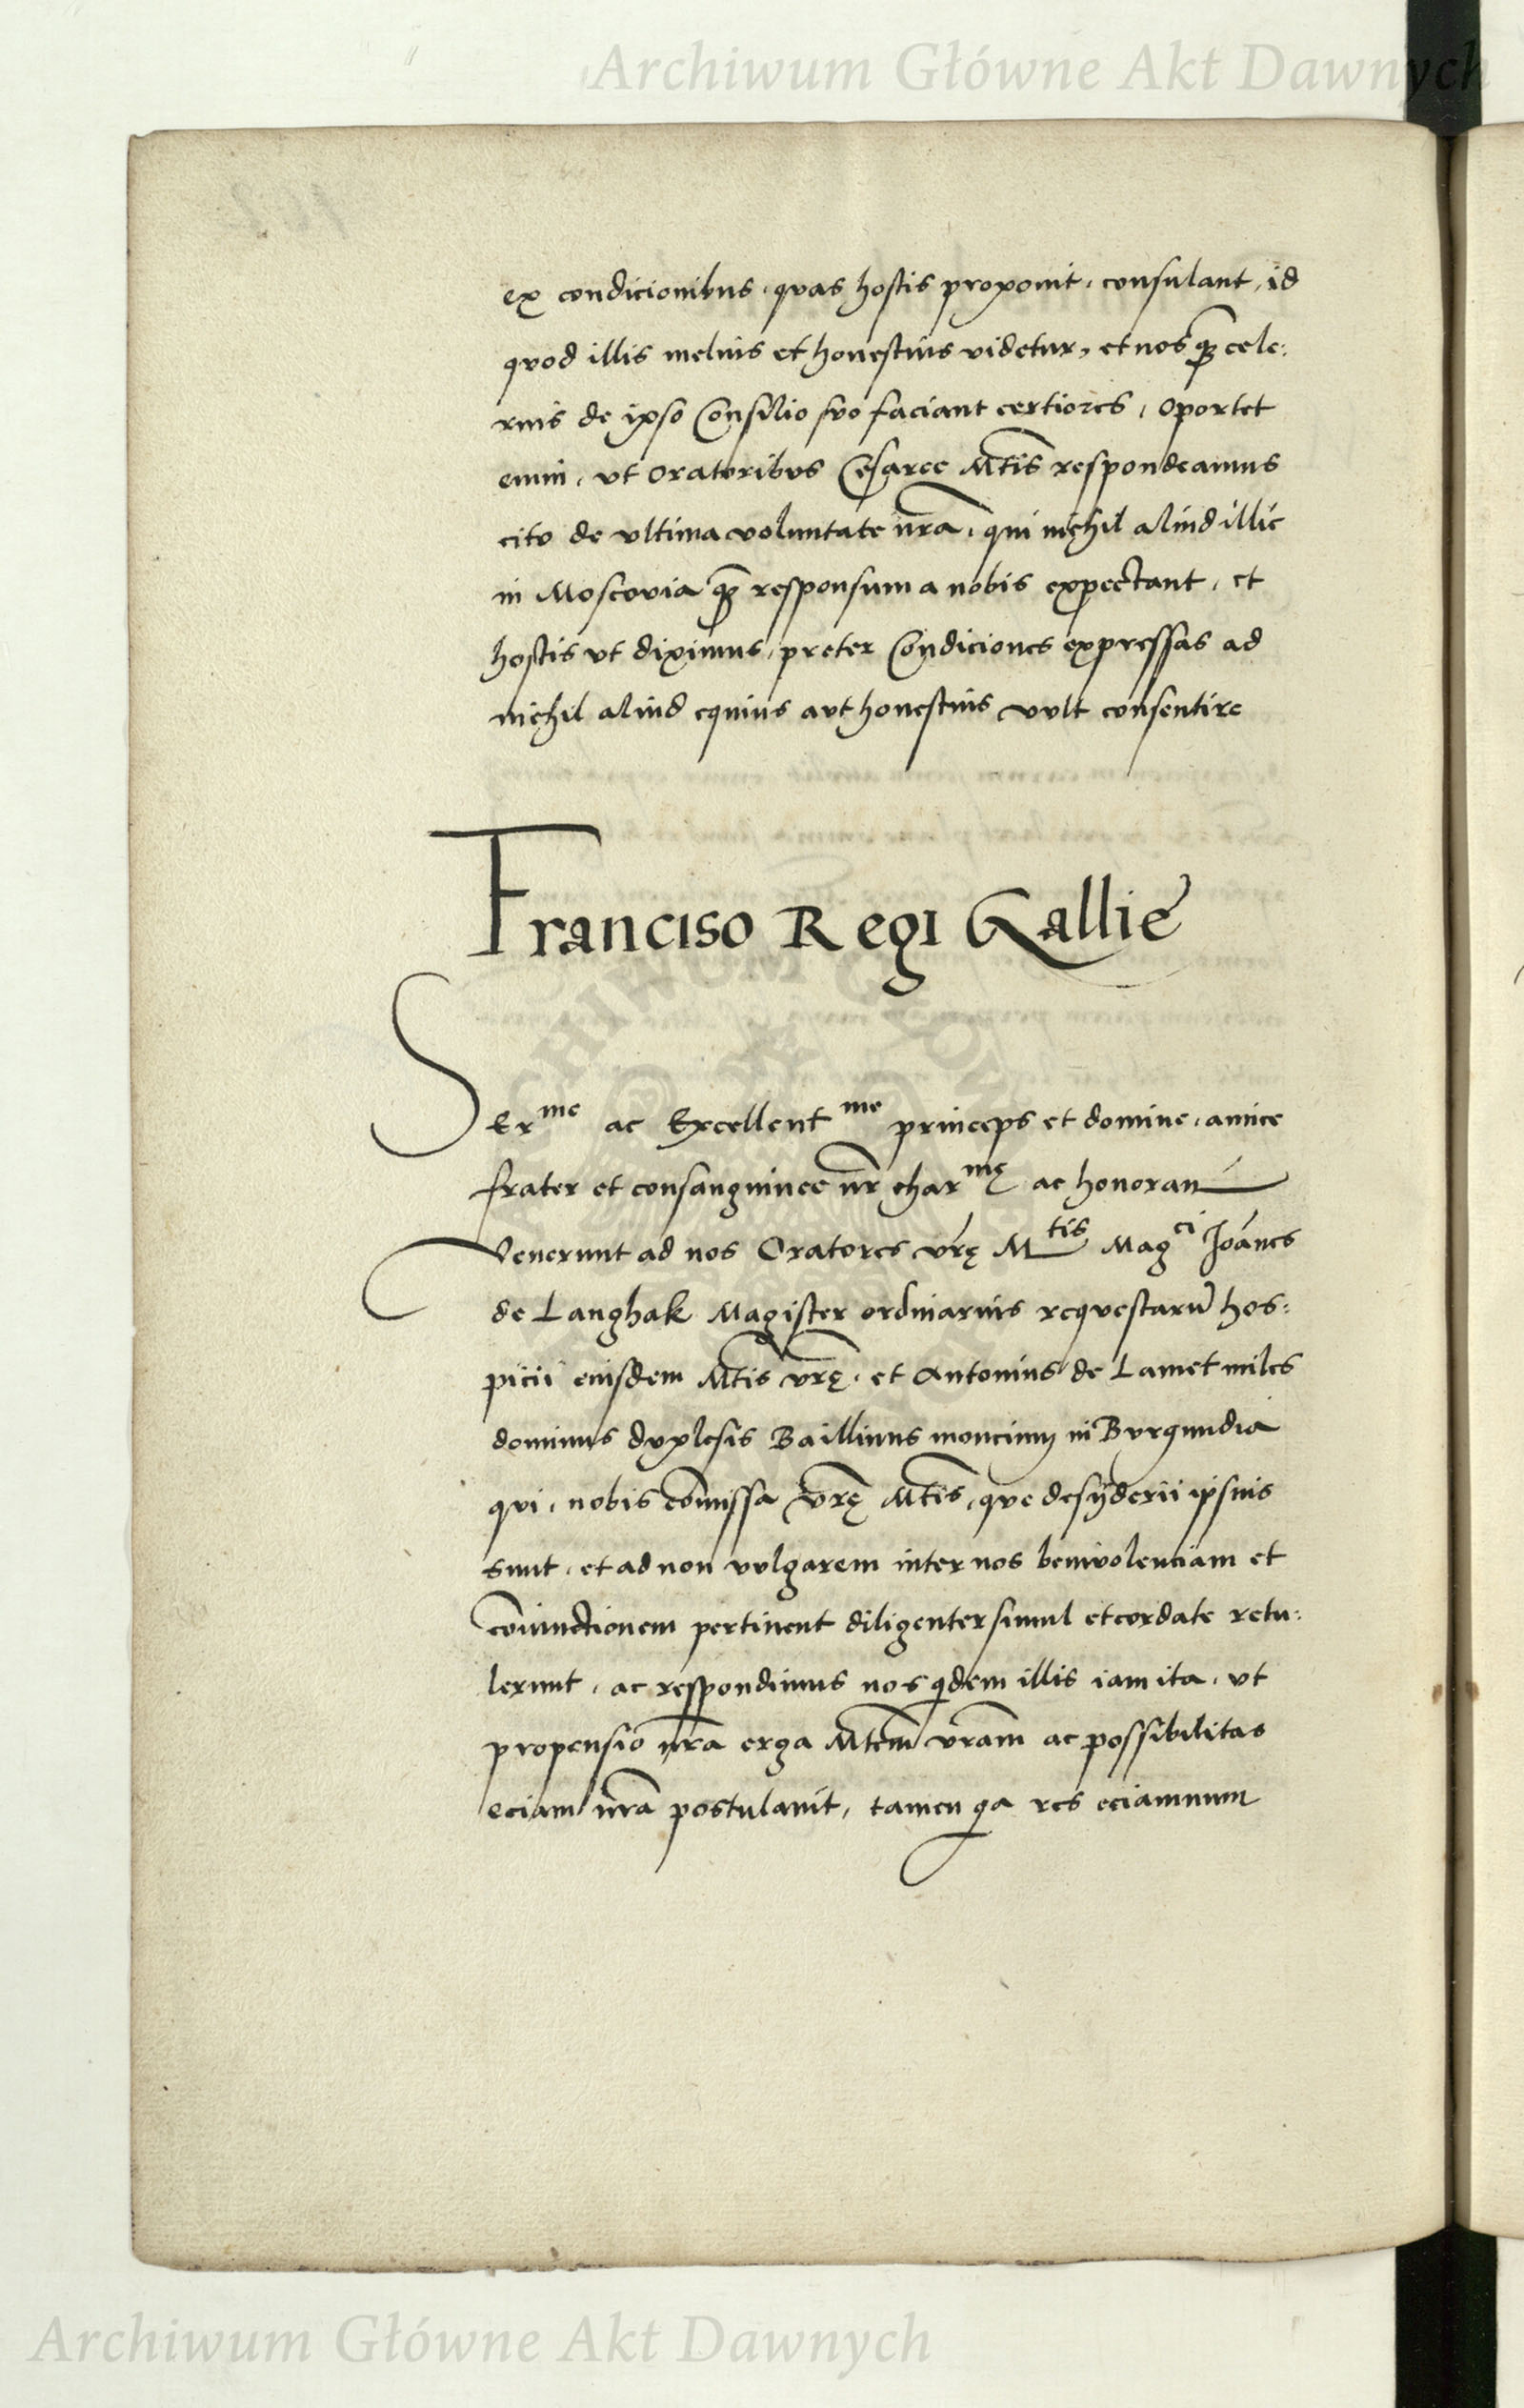 Archiwum Główne Akt Dawnych
ex condicionibus, quas hostis proponit, consulant, id
quod illis melius et honestius videtur, et nos qȝ cele:
rius de ipso Consilio suo faciant certiores, Oportet
enim, ut Oratoribus Cesaree Mtis respondeamus
cito de ultima voluntate nra, qui nichil aliud illic
in Moscovia qȝ responsum a nobis expectant, et
hostis ut diximus, preter Condiciones expressas ad
nichil aliud equius aut honestius vult consentire
Franciso Regi Gallie
SEr^me ac Excellent^me princeps et domine, amice
frater et consanguinee nr char^mę ac honoran
Venerunt ad nos Oratores vrę M^tis Mag^ci Joānes
de Langhak Magister ordinarius requestarū hos:
picii eiusdem Mtis vrę, et Antonius de Lamet miles
dominus duplesis Baillivus moncimȝ in Burgundia
qui, nobis cōmissa vrę Mtis, que desyderii ipsius
sunt, et ad non vulgarem inter nos benivolenciam et
cōiunctionem pertinent diligenter simul et cordate retu:
lerunt, ac respondimus nos qdem illis iam ita, ut
propensio nra erga Mtem vram ac possibilitas
eciam nra postulavit, tamen qa res eciamnum
Archiwum Główne Akt Dawnych